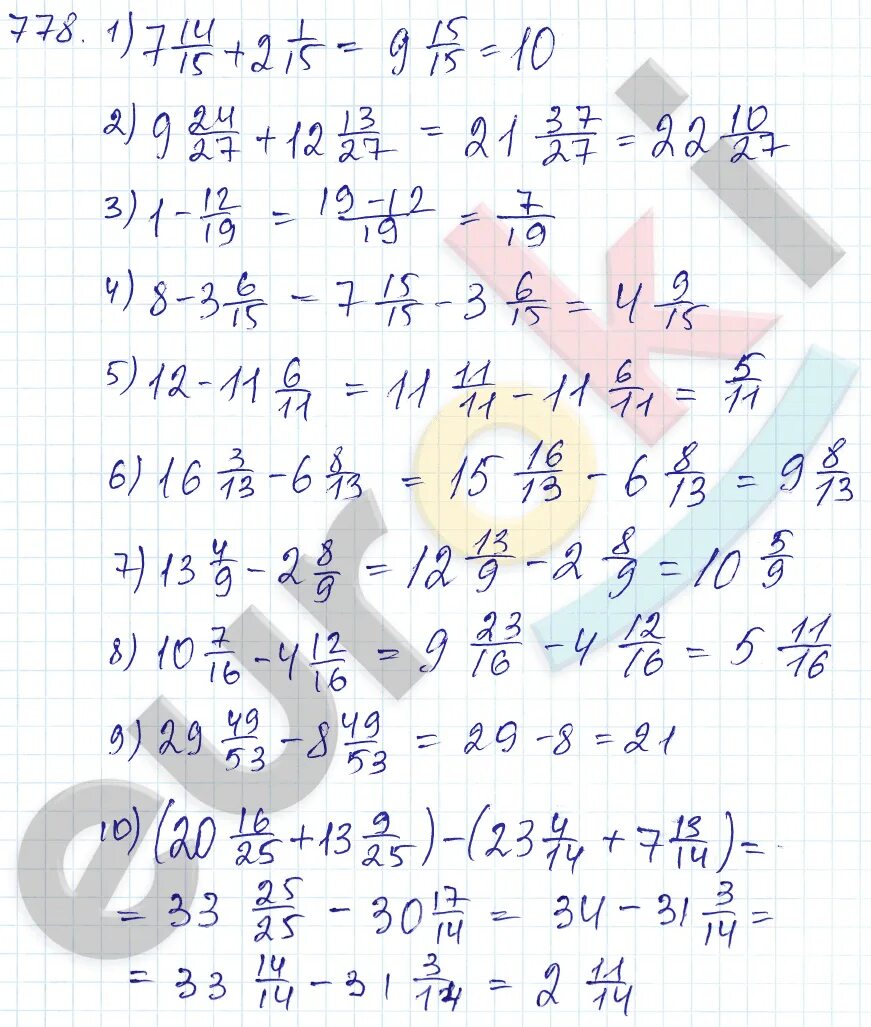 778. 1) 7 14/15 + 2 1/15 = 9 15/15 = 10
2) 9 24/27 + 12 13/27 = 21 37/27 = 22 10/27
3) 1 - 12/19 = 19-12/19 = 7/19
4) 8 - 3 6/15 = 7 15/15 - 3 6/15 = 4 9/15
5) 12 - 11 6/11 = 11 11/11 - 11 6/11 = 5/11
6) 16 3/13 - 6 8/13 = 15 16/13 - 6 8/13 = 9 8/13
7) 13 4/9 - 2 8/9 = 12 13/9 - 2 8/9 = 10 5/9
8) 10 7/16 - 4 12/16 = 9 23/16 - 4 12/16 = 5 11/16
9) 29 49/53 - 8 49/53 = 29 - 8 = 21
10) (20 16/25 + 13 9/25) - (23 4/14 + 7 13/14) =
= 33 25/25 - 30 17/14 = 34 - 31 3/14 =
= 33 14/14 - 31 3/14 = 2 11/14
euroki